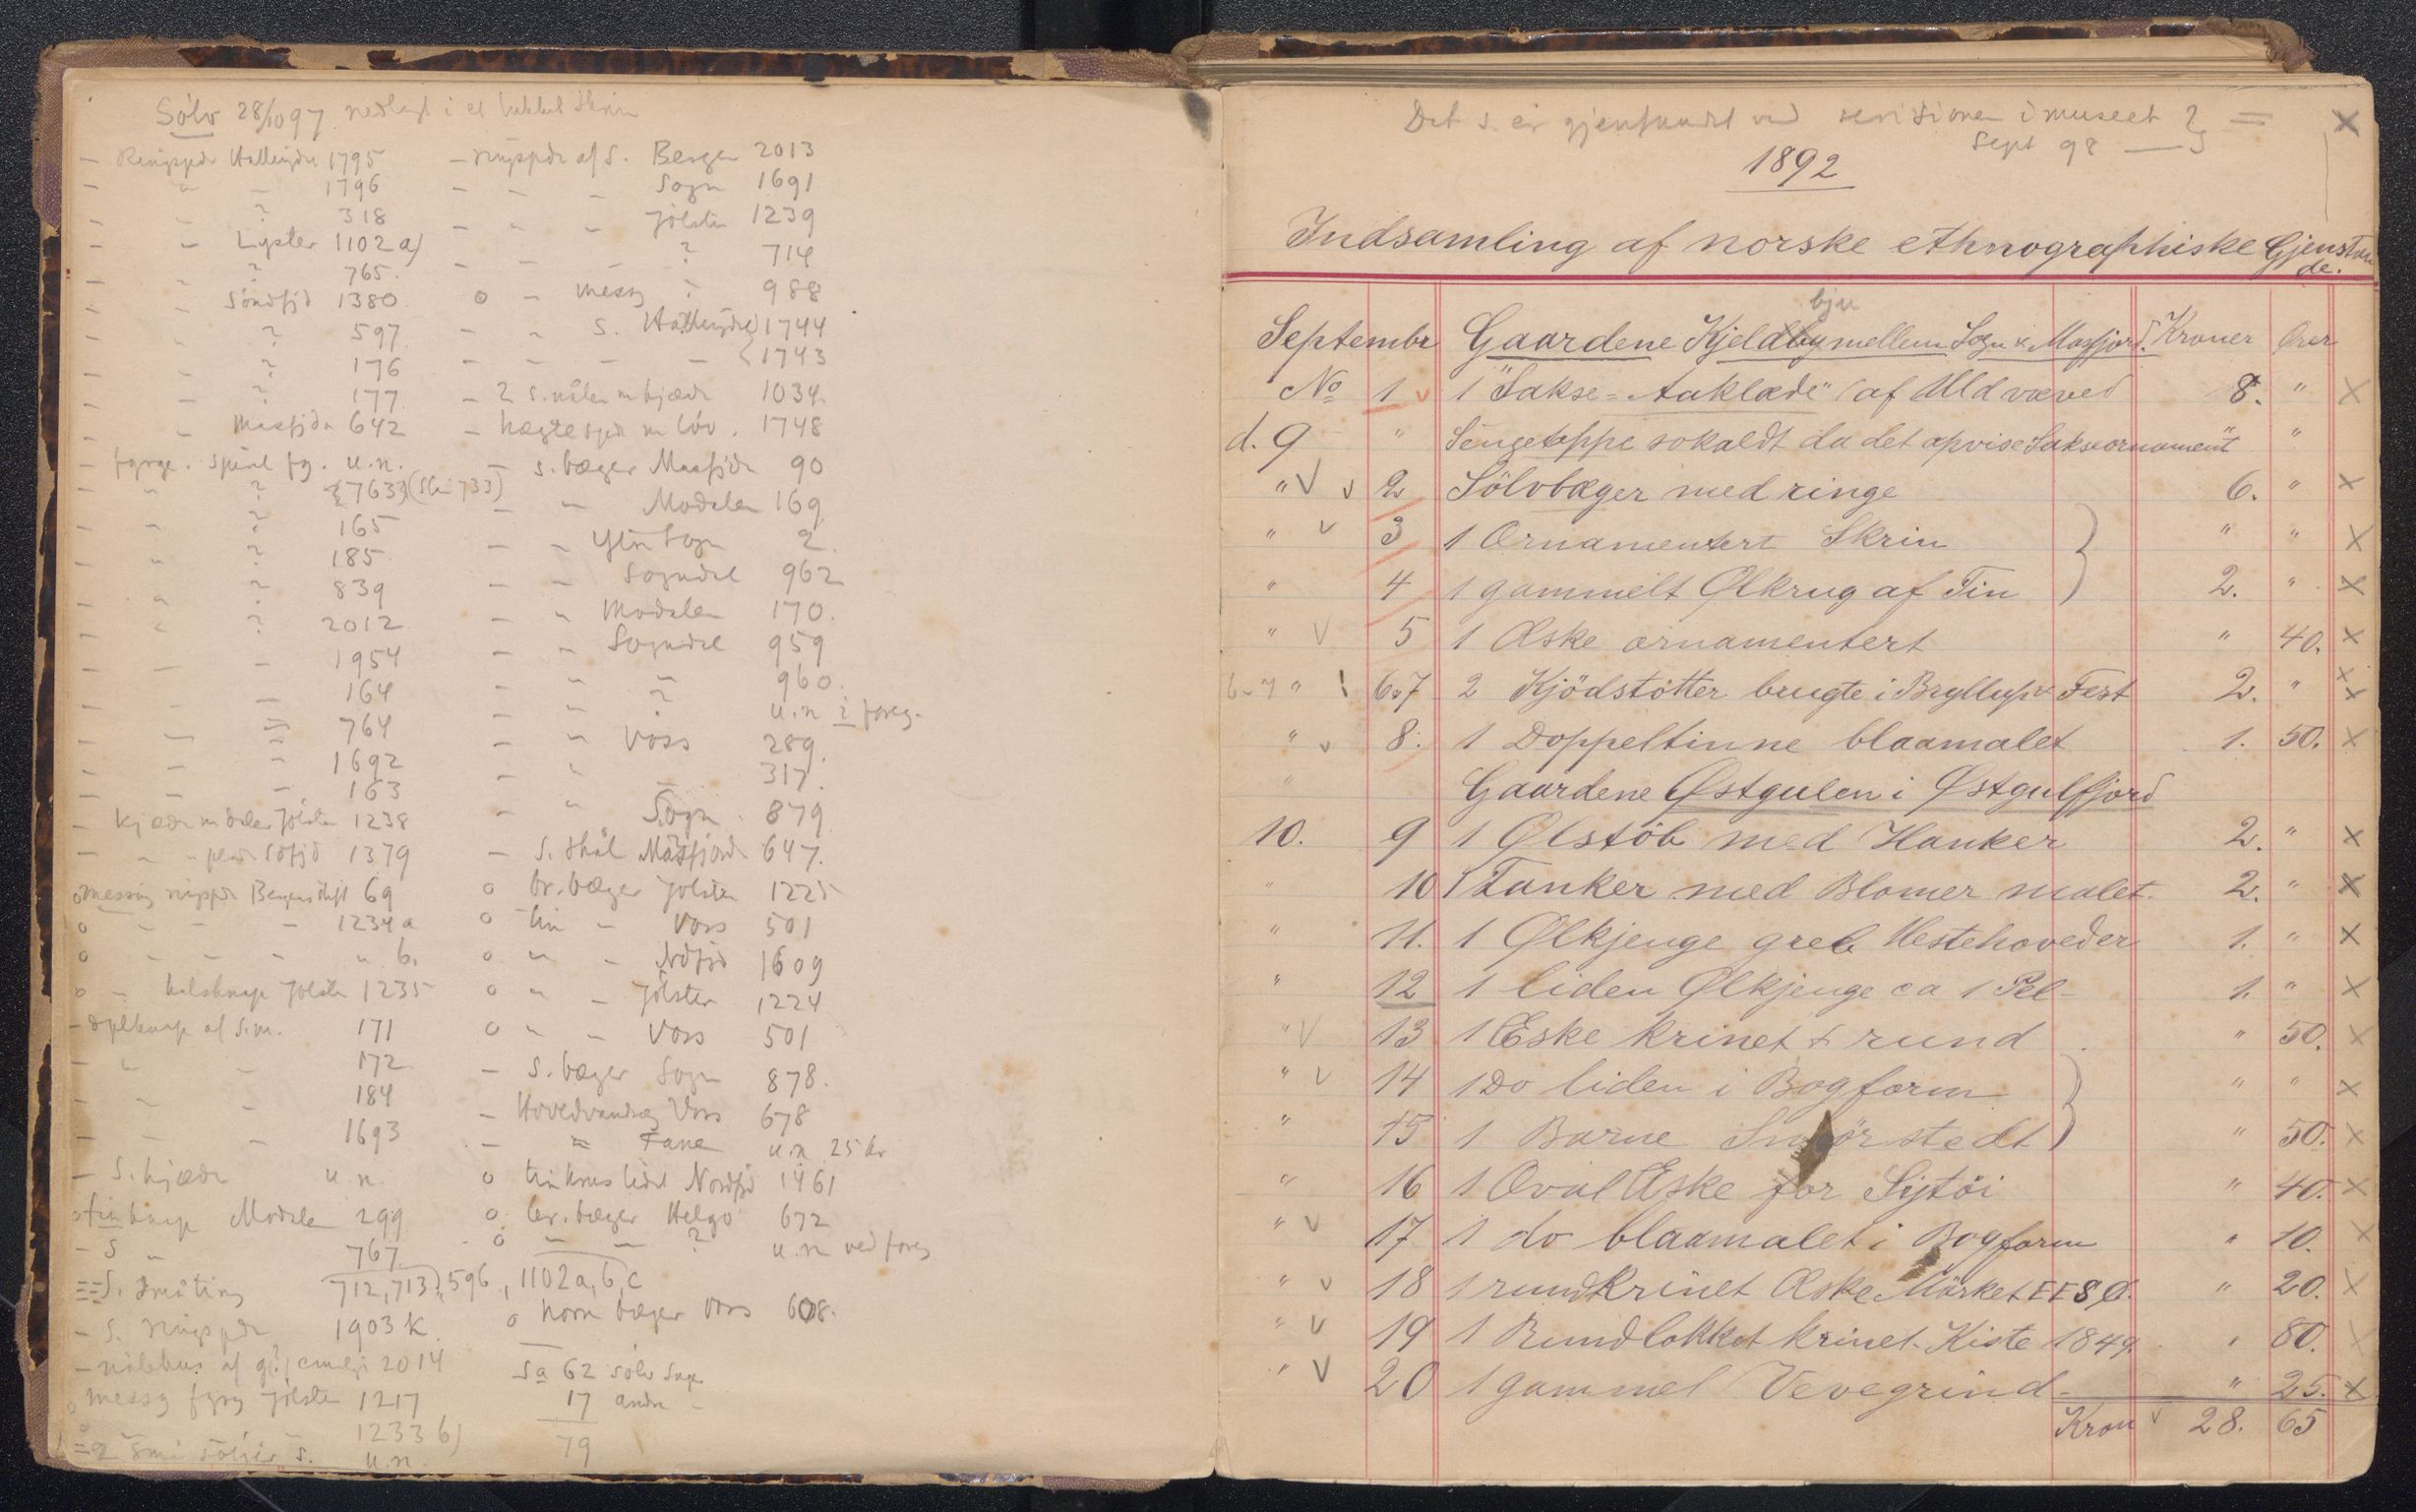 Sölv 28/10 97 nedlagt i et
— Ringspde Hallingda 1795
— " — 1796
— " ? 318
— " Lyster 1102 a)
— " ? 765.
— " Söndfjd 1380
— " ? 597
— " ? 176
— " ? 177
— " Masfjdn 642
— fgrge. spiral fg. u.n.
— " ? 763 (733)
— " ? 165
— " ? 185
— " ? 839
— " ? 2012
— — — 1954
— — 164
— — 764
— — " 1692
— — — 163
— kjæde m daler Jölster 1238
— " " plader Söfjd 1379
o messing ringspde Bergens stift 69
o — — — 1234 a
o — — — " b.
o " halsknap Jölster 1235
— dplknap af s.m. 171
— " — 172
— — — 184
— — — 1693
— S. kjæde u.n.
o tinknap Modalen 299
— S " 767
== S. småting 712, 713, 596, 1102 a, b, c
— S. ringspde 1903 k.
— nålehus af gl. 2014
o messg fgrg Jölster 1217
o 1233 b)
= 2 små söljer s. u.n.
— ringspde af S. Bergen 2013
— — — Sogn 1691
— " — Jölster 1239
— — — ? 714
o — messg ? 988
— " S. Hallingdal 1744
— — — — 1743
— 2 s. nåler m kjæde 1034.
— hægtespde m löv. 1748
— s. bæger Masfjdn 90
— " Modalen 169
— " Ytre Sogn 2.
— " Sogndal 962
— " Modalen 170.
— " Sogndal 959
— " " 960.
— " ? u.n i foreg.
— " Voss 289
— " — 317.
— " Sogn 879
— S. skål Masfjord 647.
o br. bæger Jölster 1225
o tin — Voss 501
o " — Ndfjd 1609
o " — Jölster 1224
o " — Voss 501
— S. bæger Sogn 878.
— Hovedvandsæg Voss 678
— " Fane u.n 25 kr
o tinkrus lidet Nordfjd 1461
o br. bæger Helgö 672
o — — ? u.n ved foreg
o horn bæger Voss 608.
Sa 62 sölv sager
17 andre —
79
Det s. er gjenfundet ved revisionen i museet } = X
Sept 98 —
1892
Indsamling af norske ethnographiske Gjenstan
de.
bju
Septembr Gaardene Kjeldby mellem Sogn & Masfjord. Kroner Ører
No 1 v 1 "Sakse-Aaklæde" (af Uld væved 8. " X
d. 9 " Sengetæppe sokaldt da det apvise Sakseornament " "
" V v 2 Sölvbæger med ringe 6. " X
" v 3 1 Ornamentert Skrin " " X
" 4 1 gammelt Ølkrug af Tin 2. " X
" V 5 1 Æske ornamentert " 40. X
6-7 " ! 6&7 2 Kjödstötter brugte i Bryllup & Fest 2. " X X
" v 8. 1 Doppeltinne blaamalet 1. 50. X
" Gaardene Østgulen i Østgulfjord
10. 9 1 Ølstöb med Hanker 2. " X
" 10 1 Tanker med Blomer malet. 2. " X
" 11. 1 Ølkjenge greb Hestehoveder 1. " X
" 12 1 liden Ølkjenge ca 1 Pel 1. " X
" V 13 1 Eske krinet & rund " 50. X
" v 14 1 Do liden i Bogform " " X
" 15 1 Barne Smörstedt " 50. X
" 16 1 Oval Eske for Sytöi " 40. X
" v 17 1 do blaamalet i Bogform " 10. X
" v 18 1 rund Krinet Æske Mörket E E S Ø. " 20. X
" v 19 1 Rundlokket krinet Kiste 1849. " 80. X
" V 20 1 gammel Vevegrind " 25. X
Kron v 28. 65